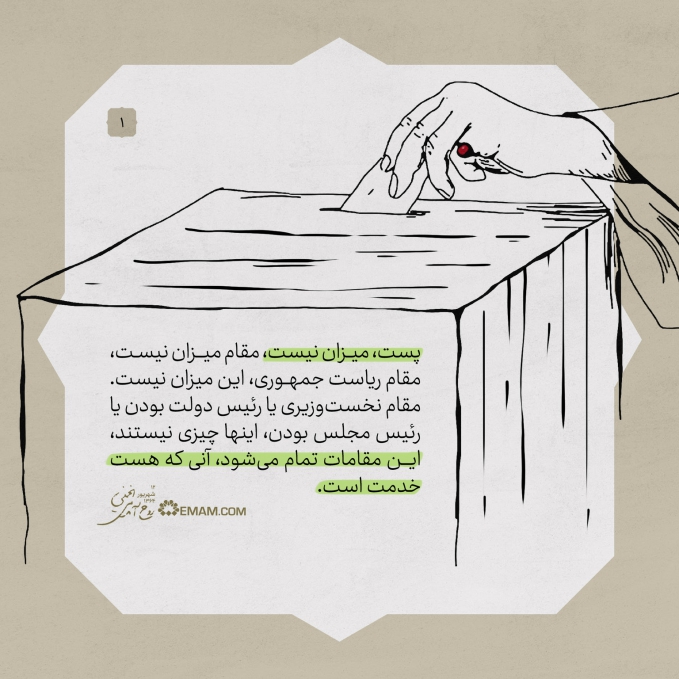 ۱
پست، میزان نیست، مقام میزان نیست،
مقام ریاست جمهوری، این میزان نیست.
مقام نخست‌وزیری یا رئیس دولت بودن یا
رئیس مجلس بودن، اینها چیزی نیستند،
این مقامات تمام می‌شود، آنی که هست
خدمت است.
EMAM.COM